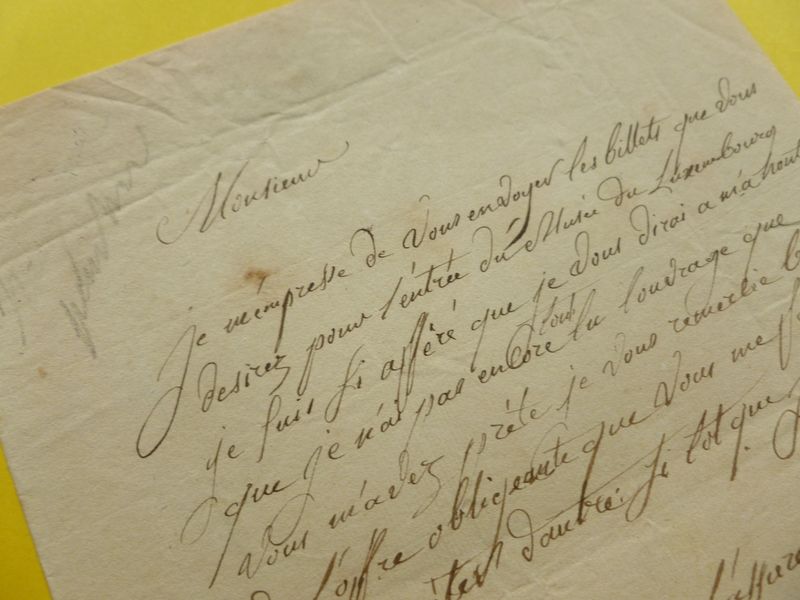 Monsieur
Je m'empresse de vous envoyer les billets que vous
desirez pour l'entrée du Musée du Luxembourg
je suis si affêré que je vous dirai a ma hont
tout
que je n'ai pas encore lu l'ouvrage que
vous m'avez prêté je vous remercie b
de l'offre obligeante que vous me f
d'autre. Si tot que j
l'assure